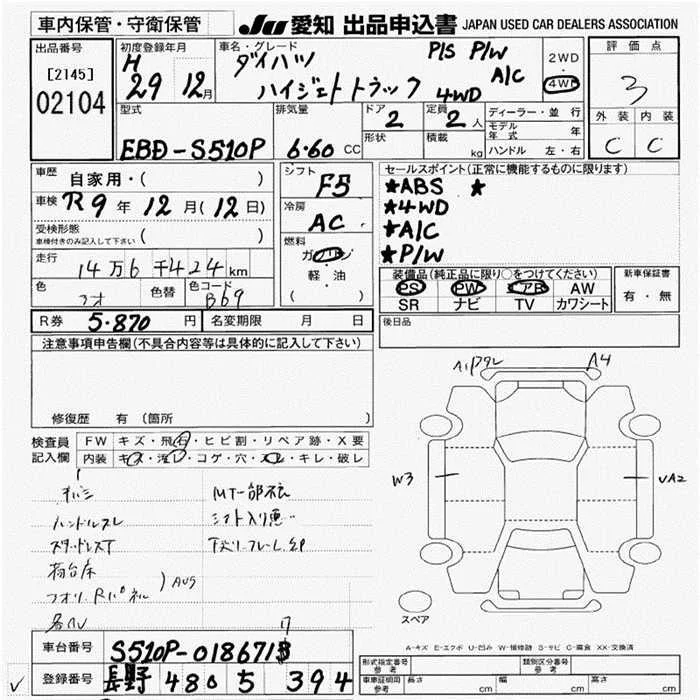 車内保管・守衛保管
JU 愛知 出品申込書 JAPAN USED CAR DEALERS ASSOCIATION
出品番号
[2145]
02104
初度登録年月
H
29 12月
車名・グレード
ダイハツ
ハイジェットトラック
P/S P/W
A/C
4WD
2WD
・
4WD
評価点
3
外装 内装
C C
型式
EBD-S510P
排気量
6.60 CC
ドア
2
定員
2人
形状
積載
kg
ディーラー・並行
モデル年 年
ハンドル 左・右
車歴 自家用・( )
車検 R9年12月(12日)
受検形態
車検付きのみ記入して下さい ( )
走行
14万6千424km
色
色替
色コード
B69
シフト
F5
冷房
AC
燃料
ガソリン
・
軽・油
( )
セールスポイント(正常に機能するものに限ります)
★ABS ★
★4WD
★A/C
★P/W
装備品(純正品に限り○をつけてください)
PS PW エアB AW
SR ナビ TV カワシート
新車保証書
有・無
R券 5.870円
名変期限 月 日
後日品
注意事項申告欄(不具合内容等は具体的に記入して下さい)
修復歴 有(箇所
検査員
記入欄
FW キズ・飛石・ヒビ割・リペア跡・X要
内装 キズ・汚レ・コゲ・穴・スレ・キレ・破レ
ハンドルスレ
荷台床
A4
W3
UA2
スペア
A-キズ E-エクボ U-凹み W-補修跡 S-サビ C-腐食 XX-交換済
車台番号 S510P-0186718
登録番号 長野 480 5 394
形式指定番号
参考
類別区分番号
参考
車車証明用
参考
長さ cm
幅 cm
高さ cm